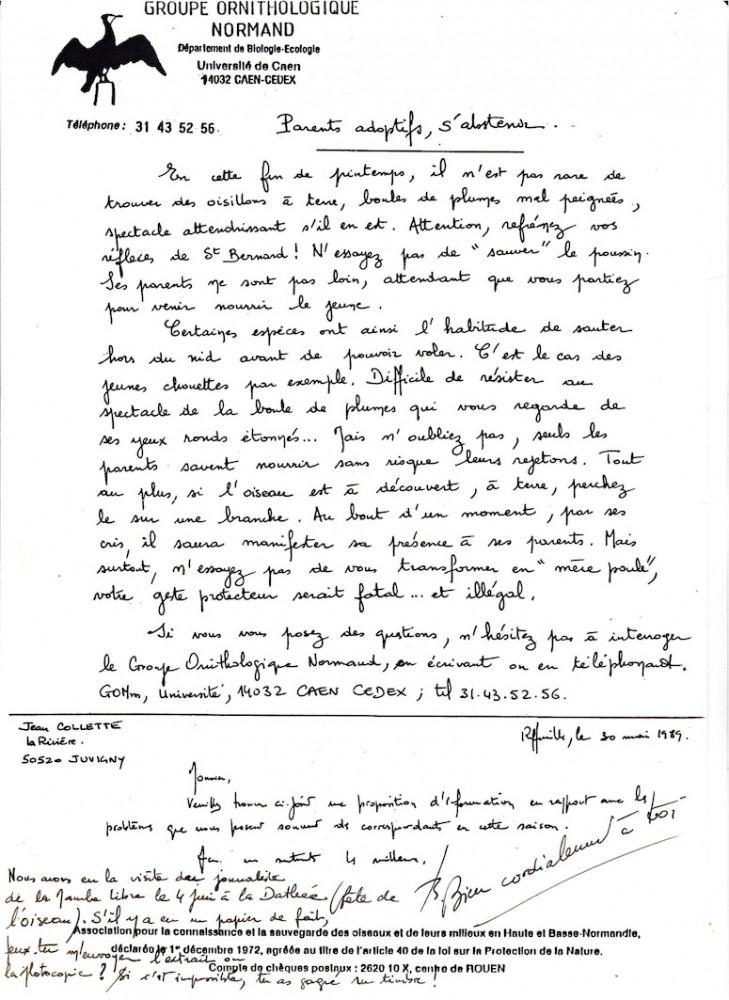 GROUPE ORNITHOLOGIQUE
NORMAND
Département de Biologie-Ecologie
Université de Caen
14032 CAEN-CEDEX
Téléphone: 31 43 52 56.
Parents adoptifs, s'abstenir.
En cette fin de printemps, il n'est pas rare de
trouver des oisillons à terre, boules de plumes mal peignées,
spectacle attendrissant s'il en est. Attention, refrénez vos
réflexes de St Bernard ! N'essayez pas de "sauver" le poussin.
Ses parents ne sont pas loin, attendant que vous partiez
pour venir nourrir le jeune.
Certaines espèces ont ainsi l'habitude de sauter
hors du nid avant de pouvoir voler. C'est le cas des
jeunes chouettes par exemple. Difficile de résister au
spectacle de la boule de plumes qui vous regarde de
ses yeux ronds étonnés... Mais n'oubliez pas, seuls les
parents savent nourrir sans risque leurs rejetons. Tout
au plus, si l'oiseau est à découvert, à terre, perchez
le sur une branche. Au bout d'un moment, par ses
cris, il saura manifester sa présence à ses parents. Mais
surtout, n'essayez pas de vous transformer en "mère poule",
votre geste protecteur serait fatal ... et illégal.
Si vous vous posez des questions, n'hésitez pas à interroger
le Groupe Ornithologique Normand, en écrivant ou en téléphonant.
GONm, Université, 14032 CAEN CEDEX ; tél 31.43.52.56.
Jean COLLETTE
la Rivière.
50520 JUVIGNY
le 30 mai 1989.
Monsieur,
Veuillez trouver ci-joint une proposition d'information en rapport avec les
problèmes que nous posent souvent des correspondants en cette saison.
Bien cordialement à toi
Nous avons eu la visite de journaliste
de la Manche Libre le 4 juin à la Dathée (fête de
l'oiseau). S'il y a eu un papier de fait,
peux-tu m'envoyer l'extrait ou
la photocopie ? Si c'est impossible, tu as gagné un timbre !
Association pour la connaissance et la sauvegarde des oiseaux et de leurs milieux en Haute et Basse-Normandie,
déclarée le 1er décembre 1972, agréée au titre de l'article 40 de la loi sur la Protection de la Nature.
Compte de chèques postaux : 2620 10 X, centre de ROUEN